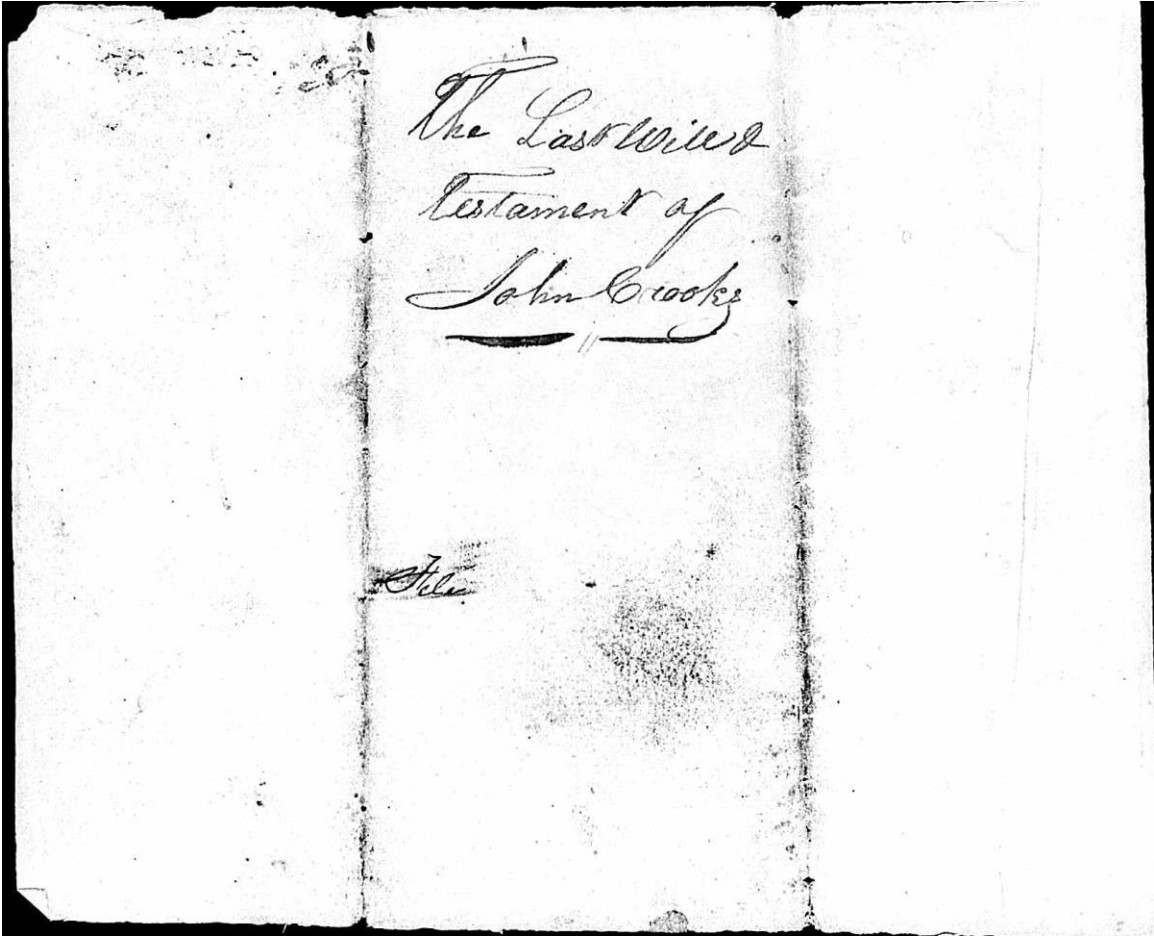 The Last Will &
Testament of
John Crooks
File